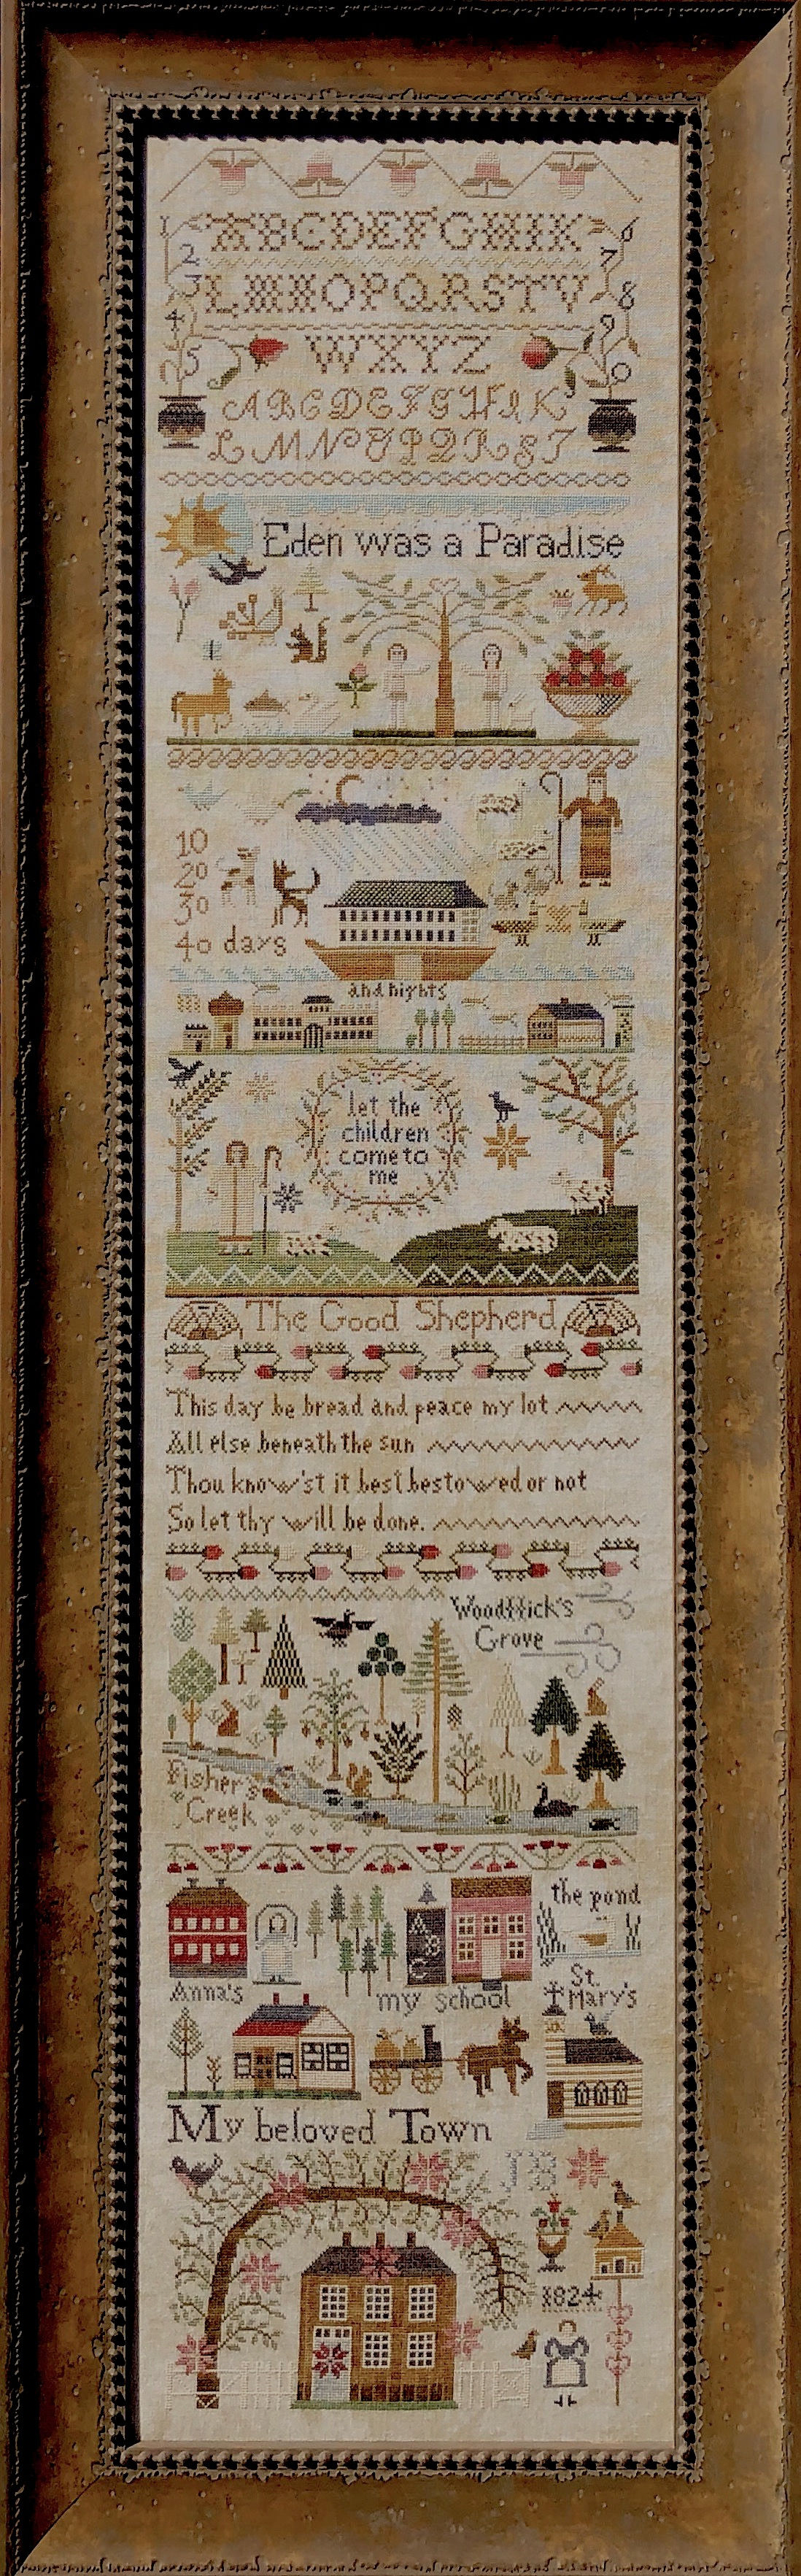 ABCDEFGHIK
LMNOPQRSTV
WXYZ
1
2
3
4
5
6
7
8
9
0
ABCDEFGHIK
LMNOPQRST
Eden was a Paradise
10
20
30
40 days
and nights
let the
children
come to
me
The Good Shepherd
This day be bread and peace my lot
All else beneath the sun
Thou know'st it best bestowed or not
So let thy will be done.
Grove
Fisher's
Creek
the pond
ABC
Anna's
my school
St.
Mary's
My beloved Town
1824